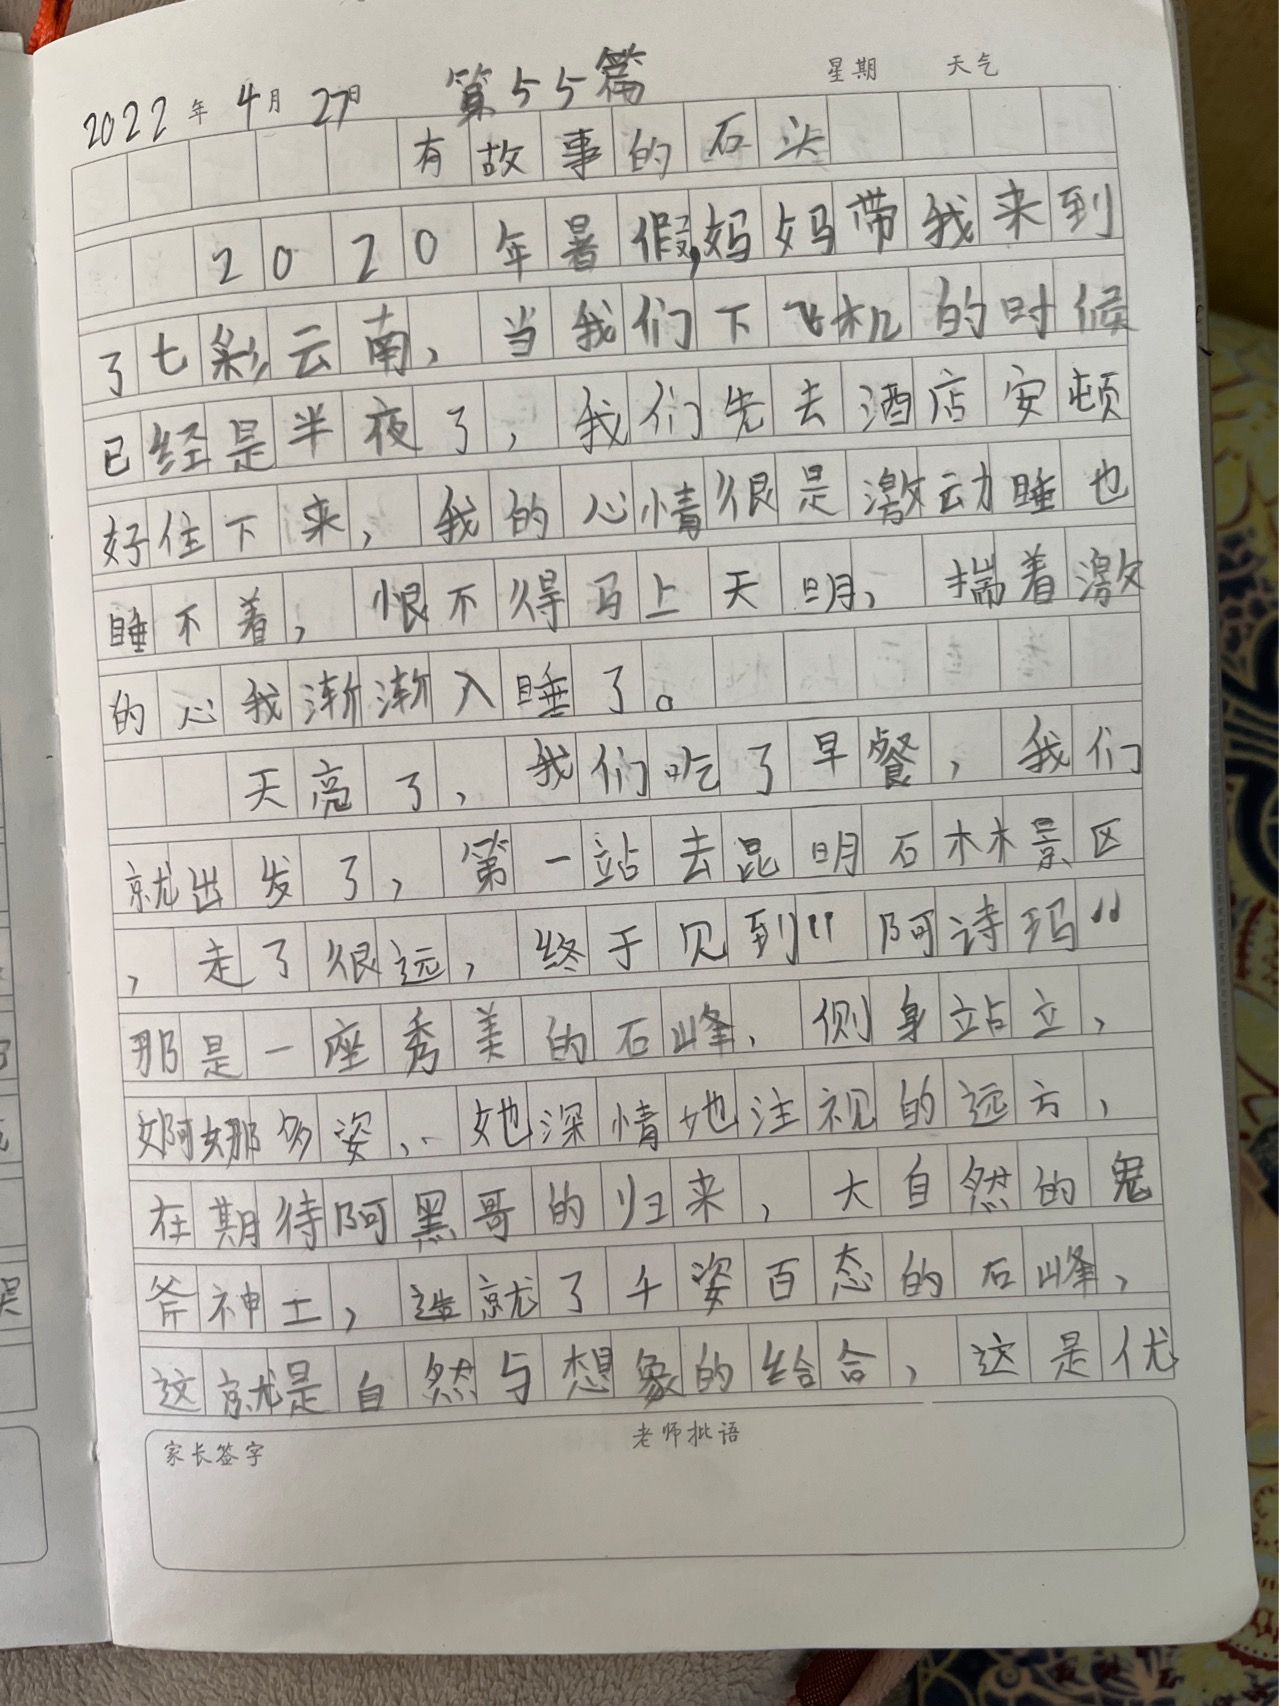 2022年4月27日 第55篇 星期 天气
有故事的石头
2020年暑假,妈妈带我来到
了七彩云南，当我们下飞机的时候
已经是半夜了，我们先去酒店安顿
好住下来，我的心情很是激动睡也
睡不着，恨不得马上天明，揣着激
的心我渐渐入睡了。
天亮了，我们吃了早餐，我们
就出发了，第一站去昆明石林景区
，走了很远，终于见到"阿诗玛"
那是一座秀美的石峰、侧身站立，
婀娜多姿，她深情地注视的远方，
在期待阿黑哥的归来，大自然的鬼
斧神工，造就了千姿百态的石峰，
这就是自然与想象的结合，这是优
家长签字
老师批语